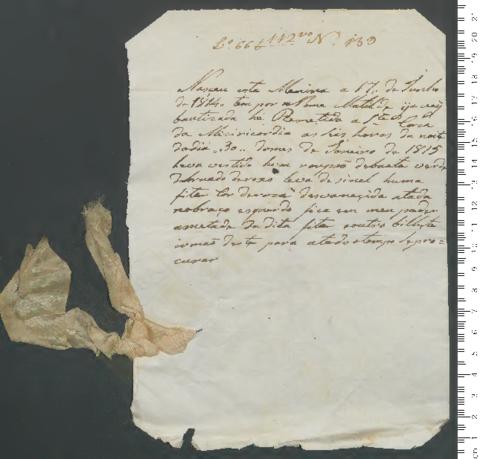 Lº 66 f 112 vº Nº 139
Nasceu esta Menina a 17,, de Junho
de 1814. tem por Nome Matilde ja vai
bautizada he Remetida a Sta Caza
da Mizericordia as tres horas da noite
do dia ,,30,, do mes de Janeiro de 1815
leva vestido hum roupão de baeta verde
debruado de roxo leva de sinal huma
fita Cor de roza desvanecida atada
no braço esquerdo fica em meu poder
ametade da dita fita outro bilhete
irmão deste para a todo o tempo se pro=
curar